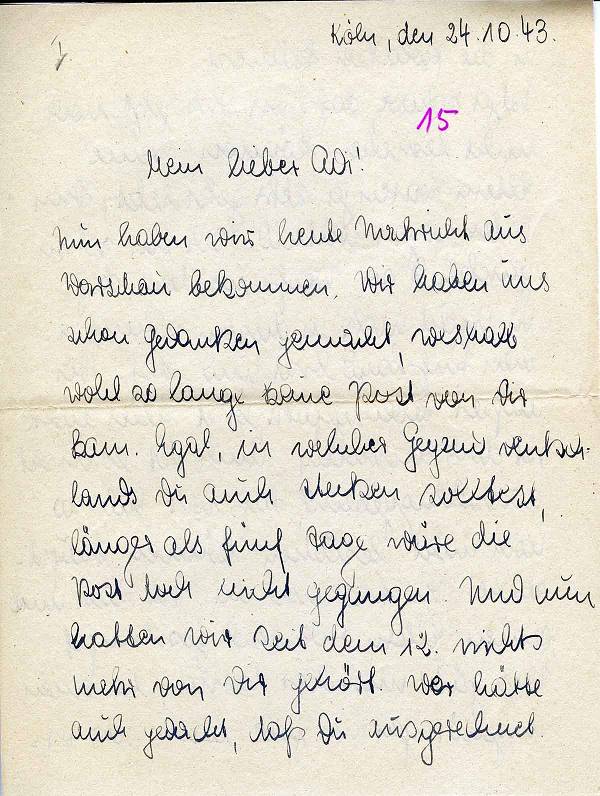 I
Köln, den 24.10.43.
15
Mein lieber Adi!
Nun haben wir heute Nachricht aus
Warschau bekommen. Wir haben uns
schon Gedanken gemacht, weshalb
wohl so lange keine Post von Dir
kam. Egal, in welcher Gegend Deutsch-
lands Du auch stecken solltest,
länger als fünf Tage wäre die
Post doch nicht gegangen. Und nun
hatten wir seit dem 12. nichts
mehr von Dir gehört. Wer hätte
auch gedacht, daß Du ausgerechnet